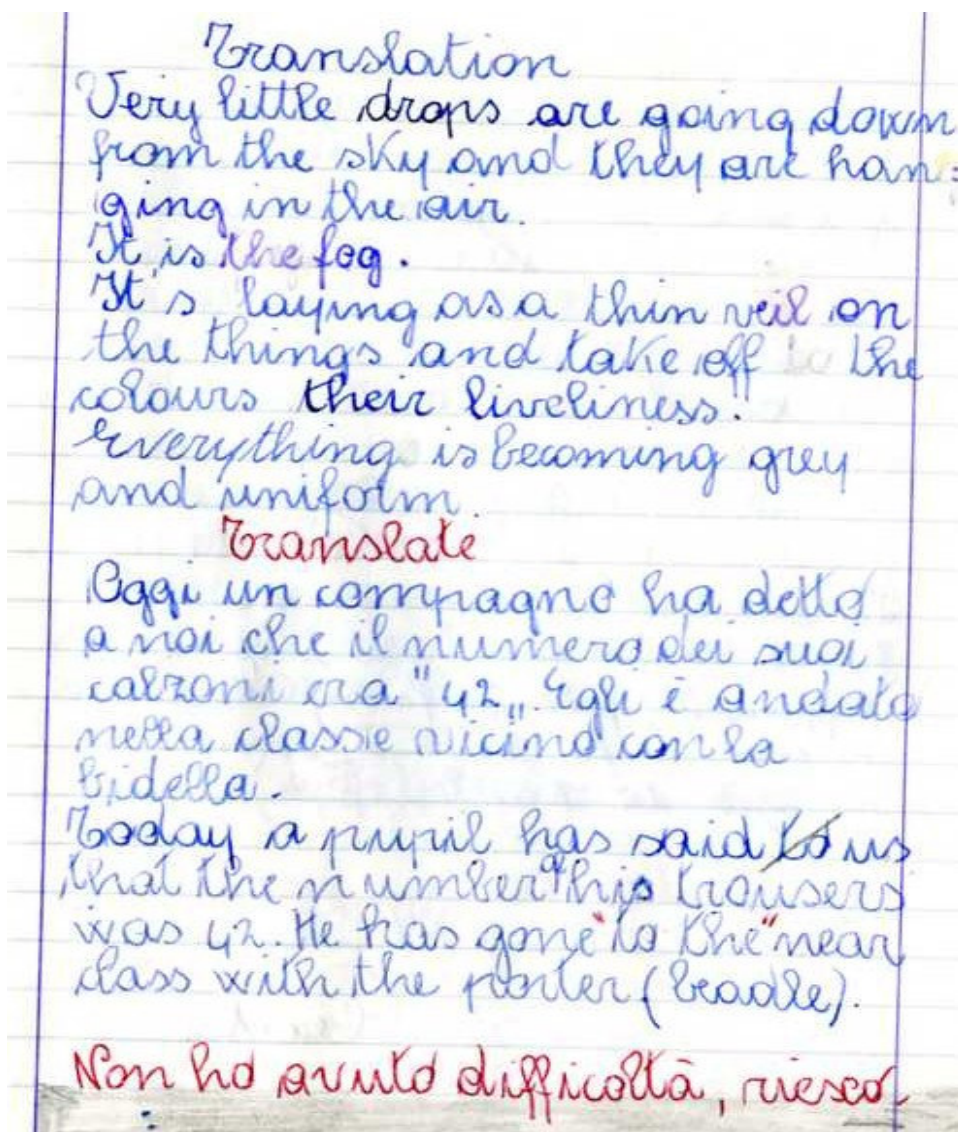 Translation
Very little drops are going down
from the sky and they are han=
ging in the air.
It is the fog.
It's laying as a thin veil on
the things and take off to the
colours their liveliness.
Everything is becoming grey
and uniform.
Translate
Oggi un compagno ha detto
a noi che il numero dei suoi
calzoni era "42„. Egli è andato
nella classe vicino con la
bidella.
Today a pupil has said to us
that the number of his trousers
was 42. He has gone "to the" near
class with the porter (beadle).
Non ho avuto difficoltà, riesco